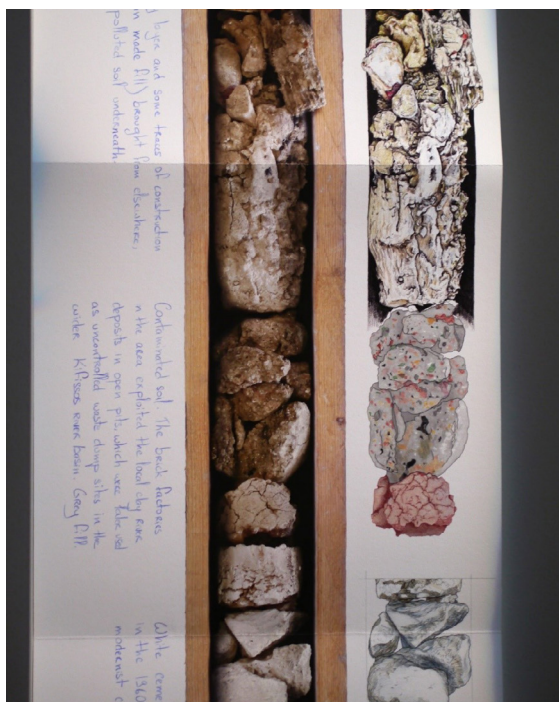 layer and some traces of construction
made fill) brought from elsewhere,
polluted soil underneath.
Contaminated soil. The brick factories
in the area exploited the local clay
deposits in open pits, which were
as uncontrolled waste dump sites in the
wider Kifissos river basin. Grey fill.
White
in the 1960